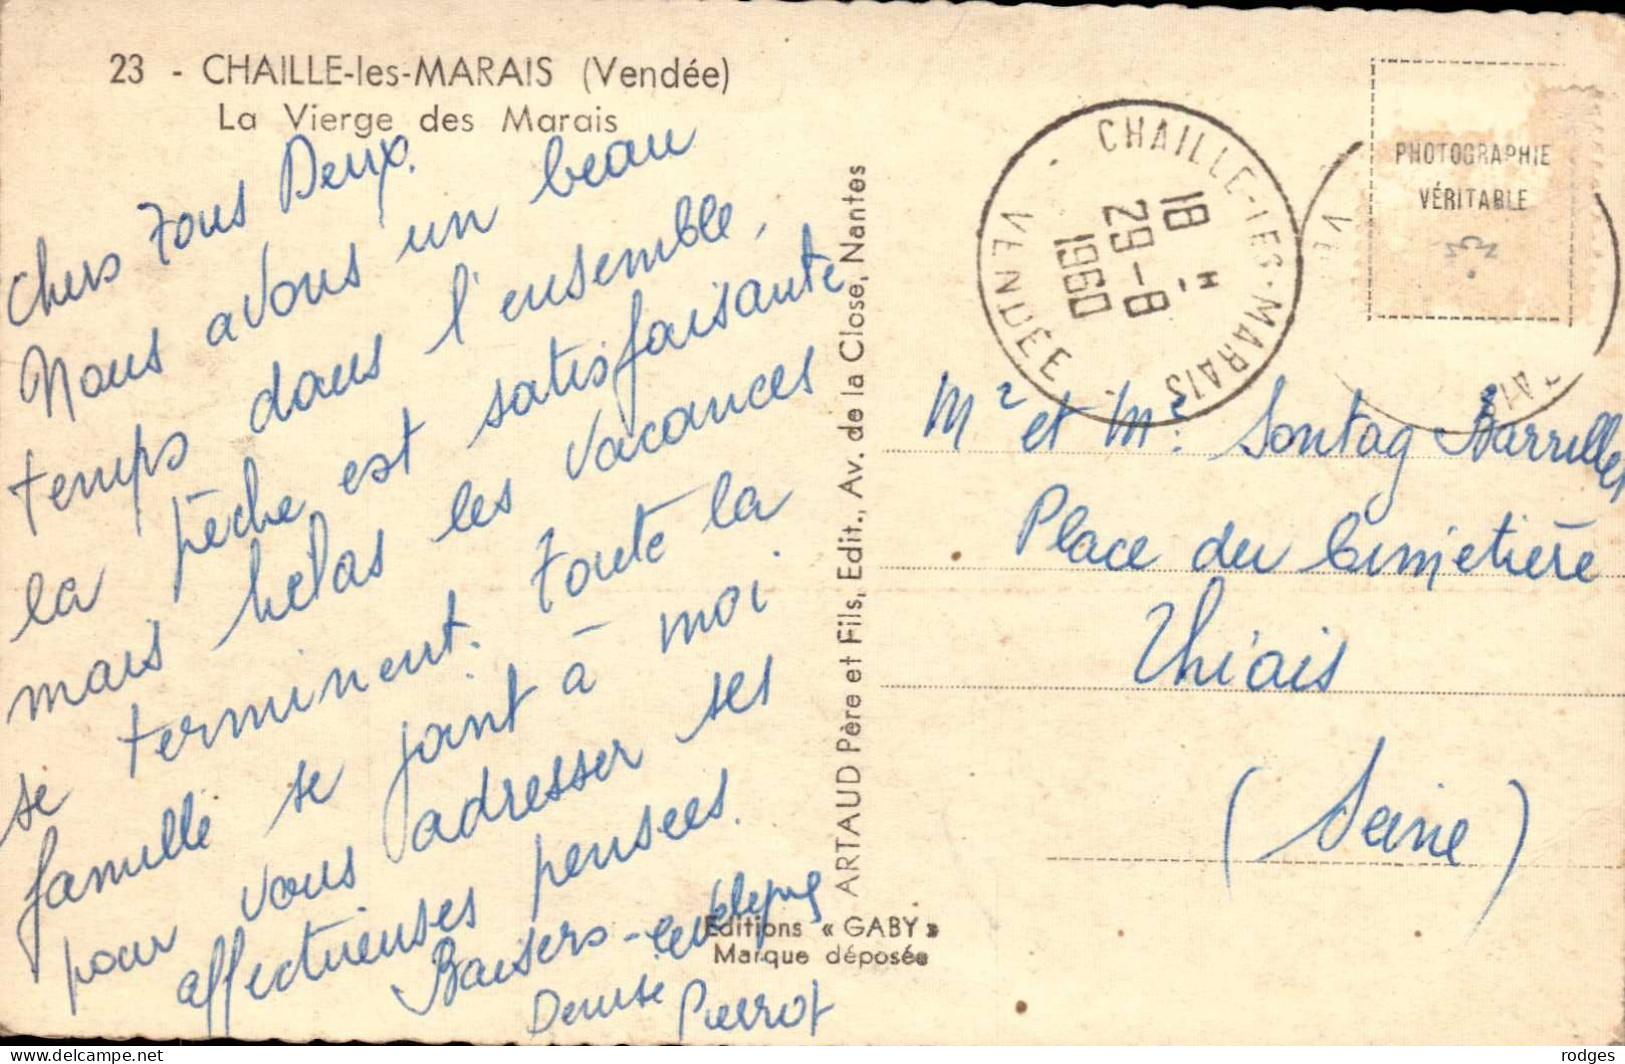 23 - CHAILLE-les-MARAIS (Vendée)
La Vierge des Marais
Chers tous Deux.
Nous avons un beau
temps dans l'ensemble,
la pêche est satisfaisante
mais hélas les vacances
se terminent. toute la
famille se joint à moi
pour vous adresser ses
affectueuses pensées.
Baisers
Denise Pierrot
ARTAUD Père et Fils, Edit., Av. de la Close, Nantes
Editions « GABY »
Marque déposée
CHAILLE-LES-MARAIS
18 H
29-8
1960
VENDÉE
PHOTOGRAPHIE
VÉRITABLE
Mr et Me. Sontag Barrilles
Place du Cimetière
Thiais
(Seine)
delcampe.net
rodges